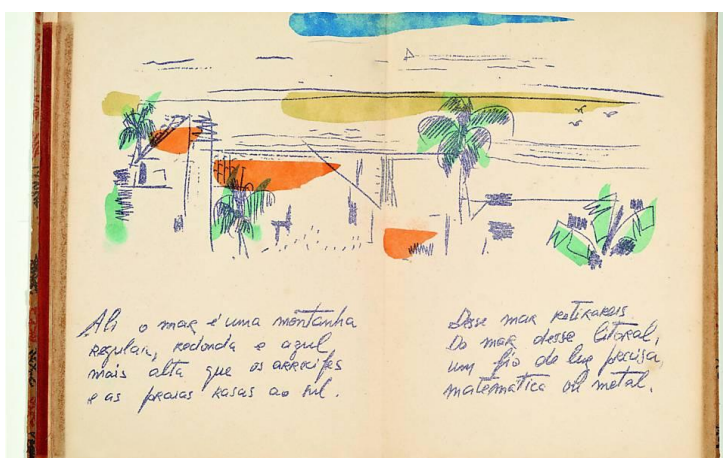 Ali o mar é uma montanha
regular, redonda e azul
mais alta que os arrecifes
e as praias rasas ao sul.
Desse mar retirareis
Do mar desse litoral,
um fio de luz precisa
matemática ou metal.